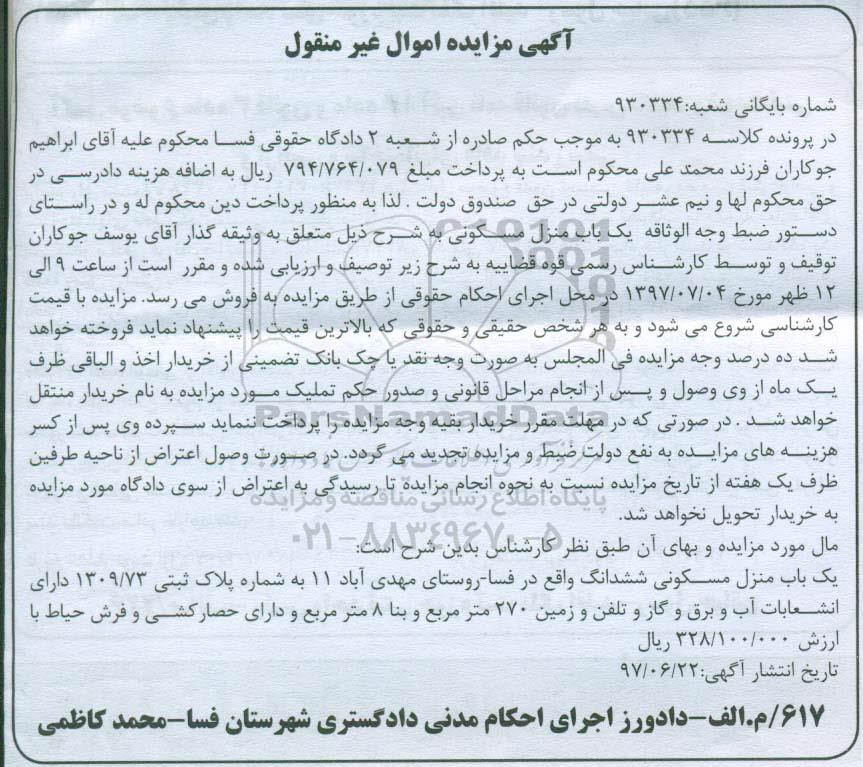 آگهی مزایده اموال غیر منقول
شماره بایگانی شعبه:۹۳۰۳۳۴
در پرونده کلاسه ۹۳۰۳۳۴ به موجب حکم صادره از شعبه ۲ دادگاه حقوقی فسا محکوم علیه آقای ابراهیم
جوکاران فرزند محمد علی محکوم است به پرداخت مبلغ ۷۹۴/۷۶۴/۰۷۹ ریال به اضافه هزینه دادرسی در
حق محکوم لها و نیم عشر دولتی در حق صندوق دولت . لذا به منظور پرداخت دین محکوم له و در راستای
دستور ضبط وجه الوثاقه یک باب منزل مسکونی به شرح ذیل متعلق به وثیقه گذار آقای یوسف جوکاران
توقیف و توسط کارشناس رسمی قوه قضاییه به شرح زیر توصیف و ارزیابی شده و مقرر است از ساعت ۹ الی
۱۲ ظهر مورخ ۱۳۹۷/۰۷/۰۴ در محل اجرای احکام حقوقی از طریق مزایده به فروش می رسد. مزایده با قیمت
کارشناسی شروع می شود و به هر شخص حقیقی و حقوقی که بالاترین قیمت را پیشنهاد نماید فروخته خواهد
شد ده درصد وجه مزایده فی المجلس به صورت وجه نقد یا چک بانک تضمینی از خریدار اخذ و الباقی ظرف
یک ماه از وی وصول و پس از انجام مراحل قانونی و صدور حکم تملیک مورد مزایده به نام خریدار منتقل
خواهد شد . در صورتی که در مهلت مقرر خریدار بقیه وجه مزایده را پرداخت ننماید سپرده وی پس از کسر
هزینه های مزایده به نفع دولت ضبط و مزایده تجدید می گردد. در صورت وصول اعتراض از ناحیه طرفین
ظرف یک هفته از تاریخ مزایده نسبت به نحوه انجام مزایده تا رسیدگی به اعتراض از سوی دادگاه مورد مزایده
به خریدار تحویل نخواهد شد.
مال مورد مزایده و بهای آن طبق نظر کارشناس بدین شرح است:
یک باب منزل مسکونی ششدانگ واقع در فسا-روستای مهدی آباد ۱۱ به شماره پلاک ثبتی ۱۳۰۹/۷۳ دارای
انشعابات آب و برق و گاز و تلفن و زمین ۲۷۰ متر مربع و بنا ۸ متر مربع و دارای حصارکشی و فرش حیاط با
ارزش ۳۲۸/۱۰۰/۰۰۰ ریال
تاریخ انتشار آگهی:۹۷/۰۶/۲۲
۶۱۷/م.الف-دادورز اجرای احکام مدنی دادگستری شهرستان فسا-محمد کاظمی
ParsNamadData
پایگاه اطلاع رسانی مناقصه و مزایده
۰۲۱-۸۸۳۴۹۶۷۰-۵